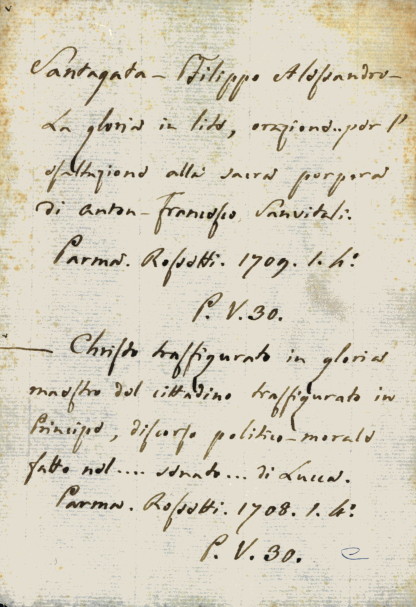 Santagata - Filippo Alessandro -
La gloria in lite, orazione.. per l'
esaltazione alla sacra porpora
di Anton-Francesco Sanvitali.
Parma. Rossetti. 1709. 1. 4.°
P. V. 30.
— Christo traffigurato in gloria
maestro del cittadino traffigurato in
Principe, discorso politico-morale
fatto nel .... senato ... di Lucca.
Parma. Rossetti. 1708. 1. 4.°
P. V. 30.